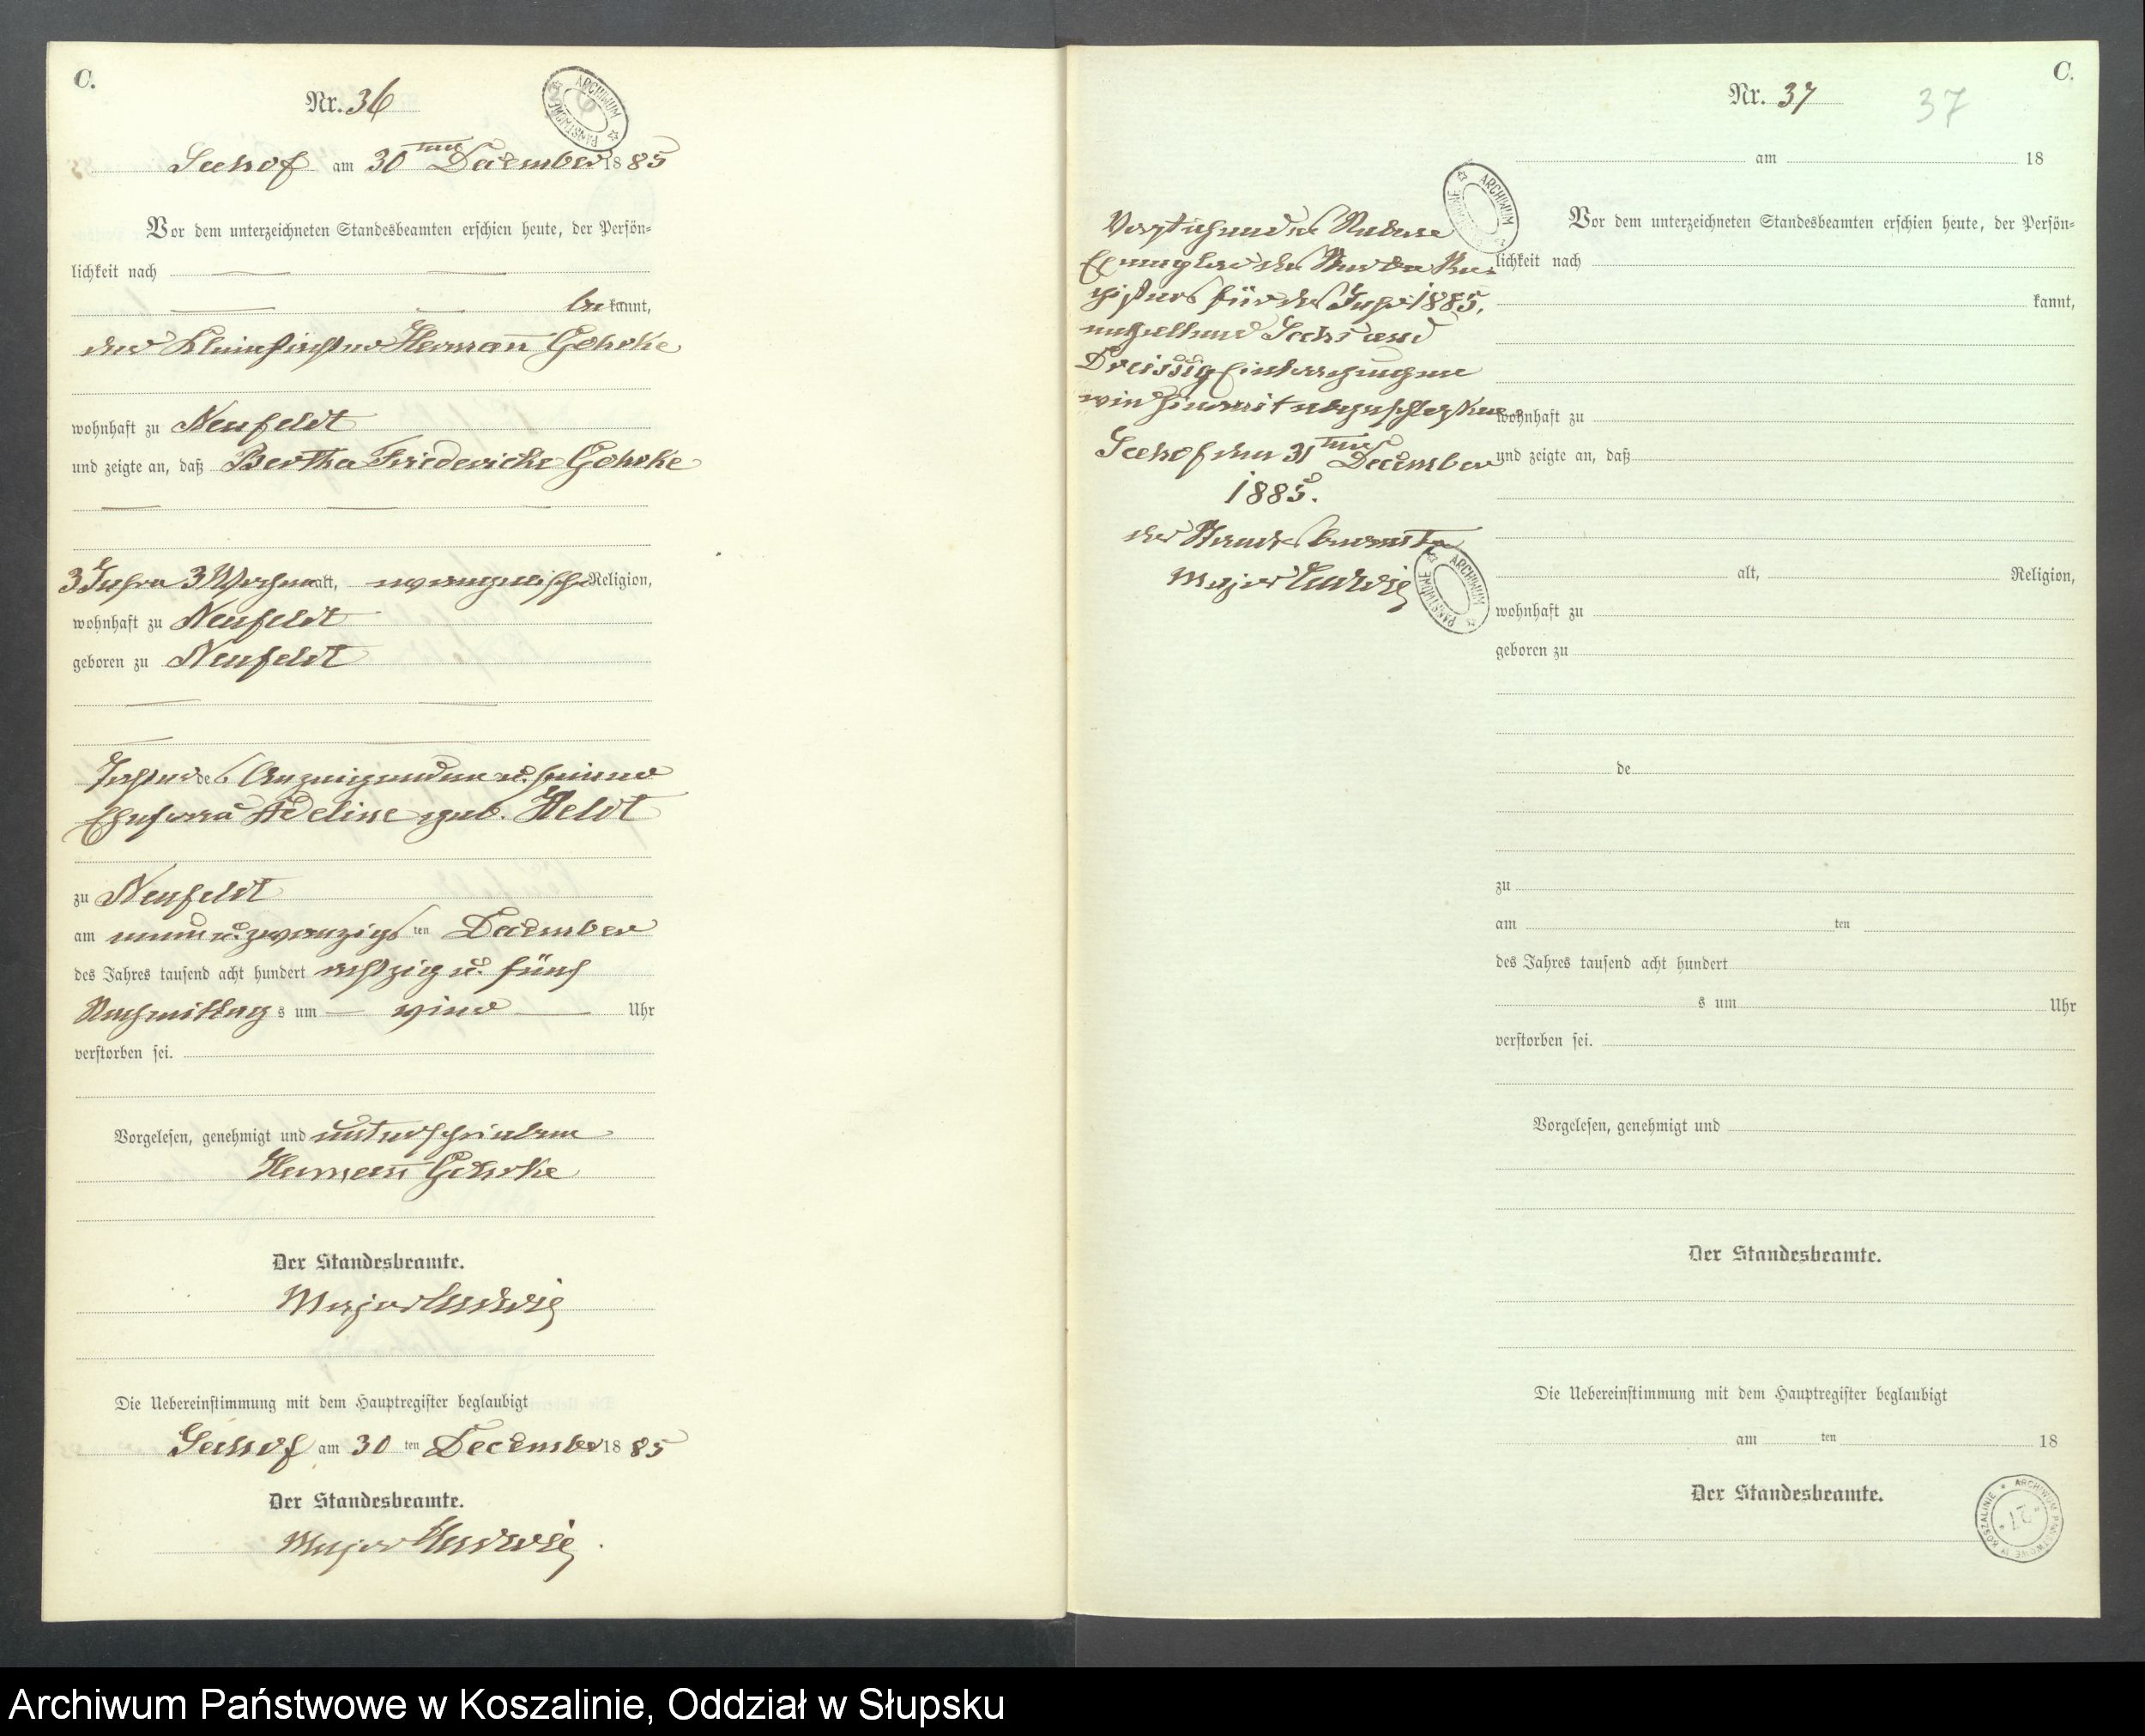 C.
Nr. 36
ARCHIWUM PAŃSTWOWE
Seehof am 30ten December 1885
Vor dem unterzeichneten Standesbeamten erschien heute, der Persön-
lichkeit nach
bekannt,
der Hermann Gohrke
wohnhaft zu Neufeldt
und zeigte an, daß Bertha Friedericke Gohrke
3 Jahre 3 Wochen alt, evangelischer Religion,
wohnhaft zu Neufeldt
geboren zu Neufeldt
Tochter des Anzeigenden u. seiner
Ehefrau Adeline geb. Heldt
zu Neufeldt
am neun u. zwanzigsten December
des Jahres tausend acht hundert achtzig u. fünf
Nachmittags um vier Uhr
verstorben sei.
Vorgelesen, genehmigt und unterschrieben
Hermann Gohrke
Der Standesbeamte.
Major Ludwig
Die Uebereinstimmung mit dem Hauptregister beglaubigt
Seehof am 30 ten December 1885
Der Standesbeamte.
Major Ludwig
C.
Nr. 37
37
am 18
ARCHIWUM PAŃSTWOWE
Vorstehendes Neben
Exemplar des Sterbe Re-
gisters für das Jahr 1885,
enthaltend Sechs und
Dreissig Eintragungen
wird hiermit abgeschlossen
Seehof den 31ten December
1885.
der Standesbeamte
Major Ludwig
ARCHIWUM PAŃSTWOWE
Vor dem unterzeichneten Standesbeamten erschien heute, der Persön-
lichkeit nach
kannt,
wohnhaft zu
und zeigte an, daß
alt, Religion,
wohnhaft zu
geboren zu
de
zu
am ten
des Jahres tausend acht hundert
s um Uhr
verstorben sei.
Vorgelesen, genehmigt und
Der Standesbeamte.
Die Uebereinstimmung mit dem Hauptregister beglaubigt
am ten 18
Der Standesbeamte.
ARCHIWUM PAŃSTWOWE W KOSZALINIE
Archiwum Państwowe w Koszalinie, Oddział w Słupsku